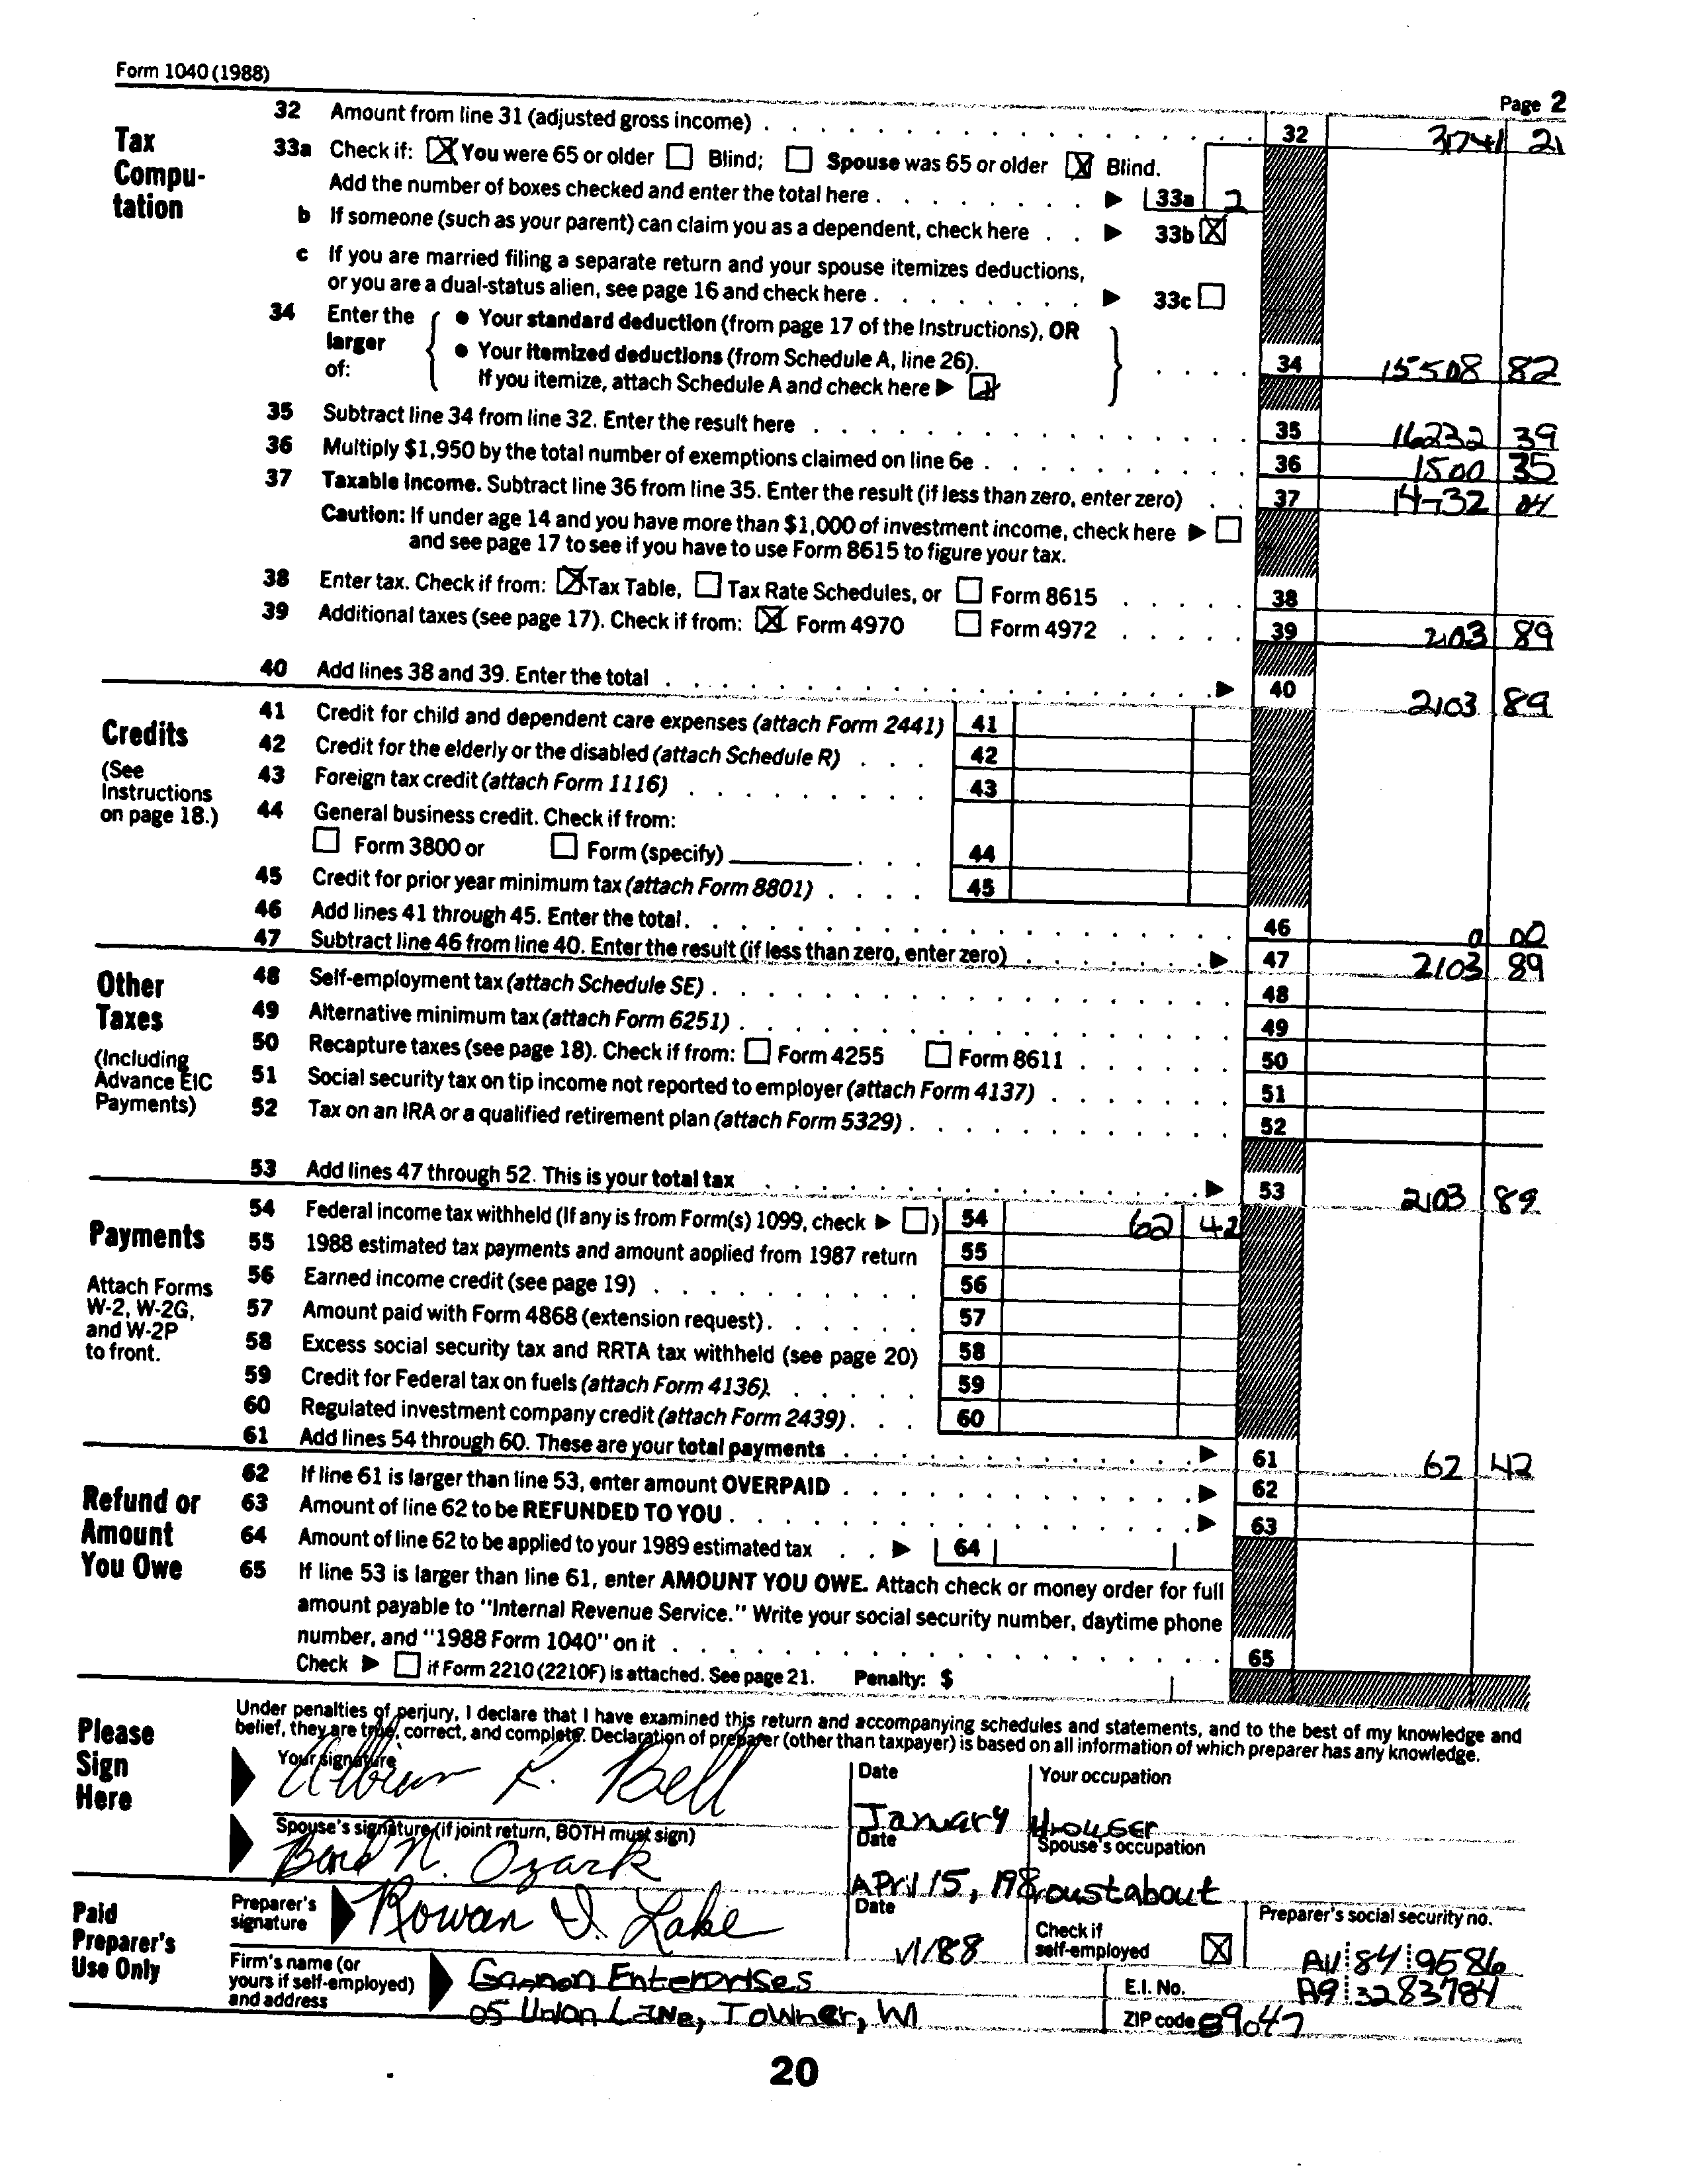 Form 1040 (1988)
Page 2
Tax Compu- tation
32 Amount from line 31 (adjusted gross income) . . . 32 31741 21
33a Check if: [X] You were 65 or older [ ] Blind; [ ] Spouse was 65 or older [X] Blind.
Add the number of boxes checked and enter the total here . . . ▶ 33a 2
b If someone (such as your parent) can claim you as a dependent, check here . . ▶ 33b [X]
c If you are married filing a separate return and your spouse itemizes deductions,
or you are a dual-status alien, see page 16 and check here . . . ▶ 33c [ ]
34 Enter the larger of: { ● Your standard deduction (from page 17 of the Instructions), OR
● Your itemized deductions (from Schedule A, line 26).
If you itemize, attach Schedule A and check here ▶ [X] } . . . . 34 15508 82
35 Subtract line 34 from line 32. Enter the result here . . . 35 16232 39
36 Multiply $1,950 by the total number of exemptions claimed on line 6e . . . 36 1500 35
37 Taxable income. Subtract line 36 from line 35. Enter the result (if less than zero, enter zero) . . 37 14732 04
Caution: If under age 14 and you have more than $1,000 of investment income, check here ▶ [ ]
and see page 17 to see if you have to use Form 8615 to figure your tax.
38 Enter tax. Check if from: [X] Tax Table, [ ] Tax Rate Schedules, or [ ] Form 8615 . . . 38
39 Additional taxes (see page 17). Check if from: [X] Form 4970 [ ] Form 4972 . . . 39 2103 89
40 Add lines 38 and 39. Enter the total . . . ▶ 40 2103 89
Credits
(See Instructions on page 18.)
41 Credit for child and dependent care expenses (attach Form 2441) 41
42 Credit for the elderly or the disabled (attach Schedule R) . . . 42
43 Foreign tax credit (attach Form 1116) . . . 43
44 General business credit. Check if from:
[ ] Form 3800 or [ ] Form (specify) . . . 44
45 Credit for prior year minimum tax (attach Form 8801) . . . . 45
46 Add lines 41 through 45. Enter the total. . . . 46 0 00
47 Subtract line 46 from line 40. Enter the result (if less than zero, enter zero) . . . ▶ 47 2103 89
Other Taxes
(Including Advance EIC Payments)
48 Self-employment tax (attach Schedule SE) . . . 48
49 Alternative minimum tax (attach Form 6251) . . . 49
50 Recapture taxes (see page 18). Check if from: [ ] Form 4255 [ ] Form 8611 . . . 50
51 Social security tax on tip income not reported to employer (attach Form 4137) . . . 51
52 Tax on an IRA or a qualified retirement plan (attach Form 5329) . . . 52
53 Add lines 47 through 52. This is your total tax . . . ▶ 53 2103 89
Payments
Attach Forms W-2, W-2G, and W-2P to front.
54 Federal income tax withheld (If any is from Form(s) 1099, check ▶ [ ]) 54 62 42
55 1988 estimated tax payments and amount applied from 1987 return 55
56 Earned income credit (see page 19) . . . 56
57 Amount paid with Form 4868 (extension request) . . . 57
58 Excess social security tax and RRTA tax withheld (see page 20) 58
59 Credit for Federal tax on fuels (attach Form 4136). . . . 59
60 Regulated investment company credit (attach Form 2439) . . . 60
61 Add lines 54 through 60. These are your total payments . . . ▶ 61 62 42
Refund or Amount You Owe
62 If line 61 is larger than line 53, enter amount OVERPAID . . . ▶ 62
63 Amount of line 62 to be REFUNDED TO YOU . . . ▶ 63
64 Amount of line 62 to be applied to your 1989 estimated tax . . ▶ 64
65 If line 53 is larger than line 61, enter AMOUNT YOU OWE. Attach check or money order for full
amount payable to "Internal Revenue Service." Write your social security number, daytime phone
number, and "1988 Form 1040" on it . . . 65
Check ▶ [ ] if Form 2210 (2210F) is attached. See page 21. Penalty: $
Please Sign Here
Under penalties of perjury, I declare that I have examined this return and accompanying schedules and statements, and to the best of my knowledge and
belief, they are true, correct, and complete. Declaration of preparer (other than taxpayer) is based on all information of which preparer has any knowledge.
Your signature Date Your occupation
K. Bell January
Spouse's signature (if joint return, BOTH must sign) Date Spouse's occupation
N. Ozark April 15, 198 roustabout
Paid Preparer's Use Only
Preparer's signature Rowan D. Lake Date 1/1/88 Check if self-employed [X] Preparer's social security no.
84 9586
Firm's name (or yours if self-employed) and address Gannon Enterprises E.I. No. A9 3283784
05 Union Lane, Towner, WI ZIP code 89047
20